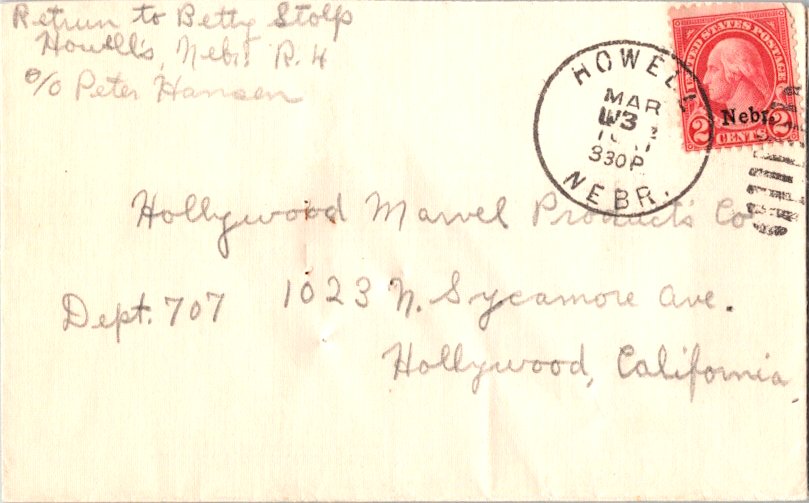 Retrun to Betty Stolp
Howell's, Nebr. R. 4
c/o Peter Hansen
HOWELL
MAR
3
330P
NEBR.
UNITED STATES POSTAGE
Nebr.
2 CENTS 2
Hollywood Marvel Products Co
Dept. 707 1023 N. Sycamore Ave.
Hollywood, California